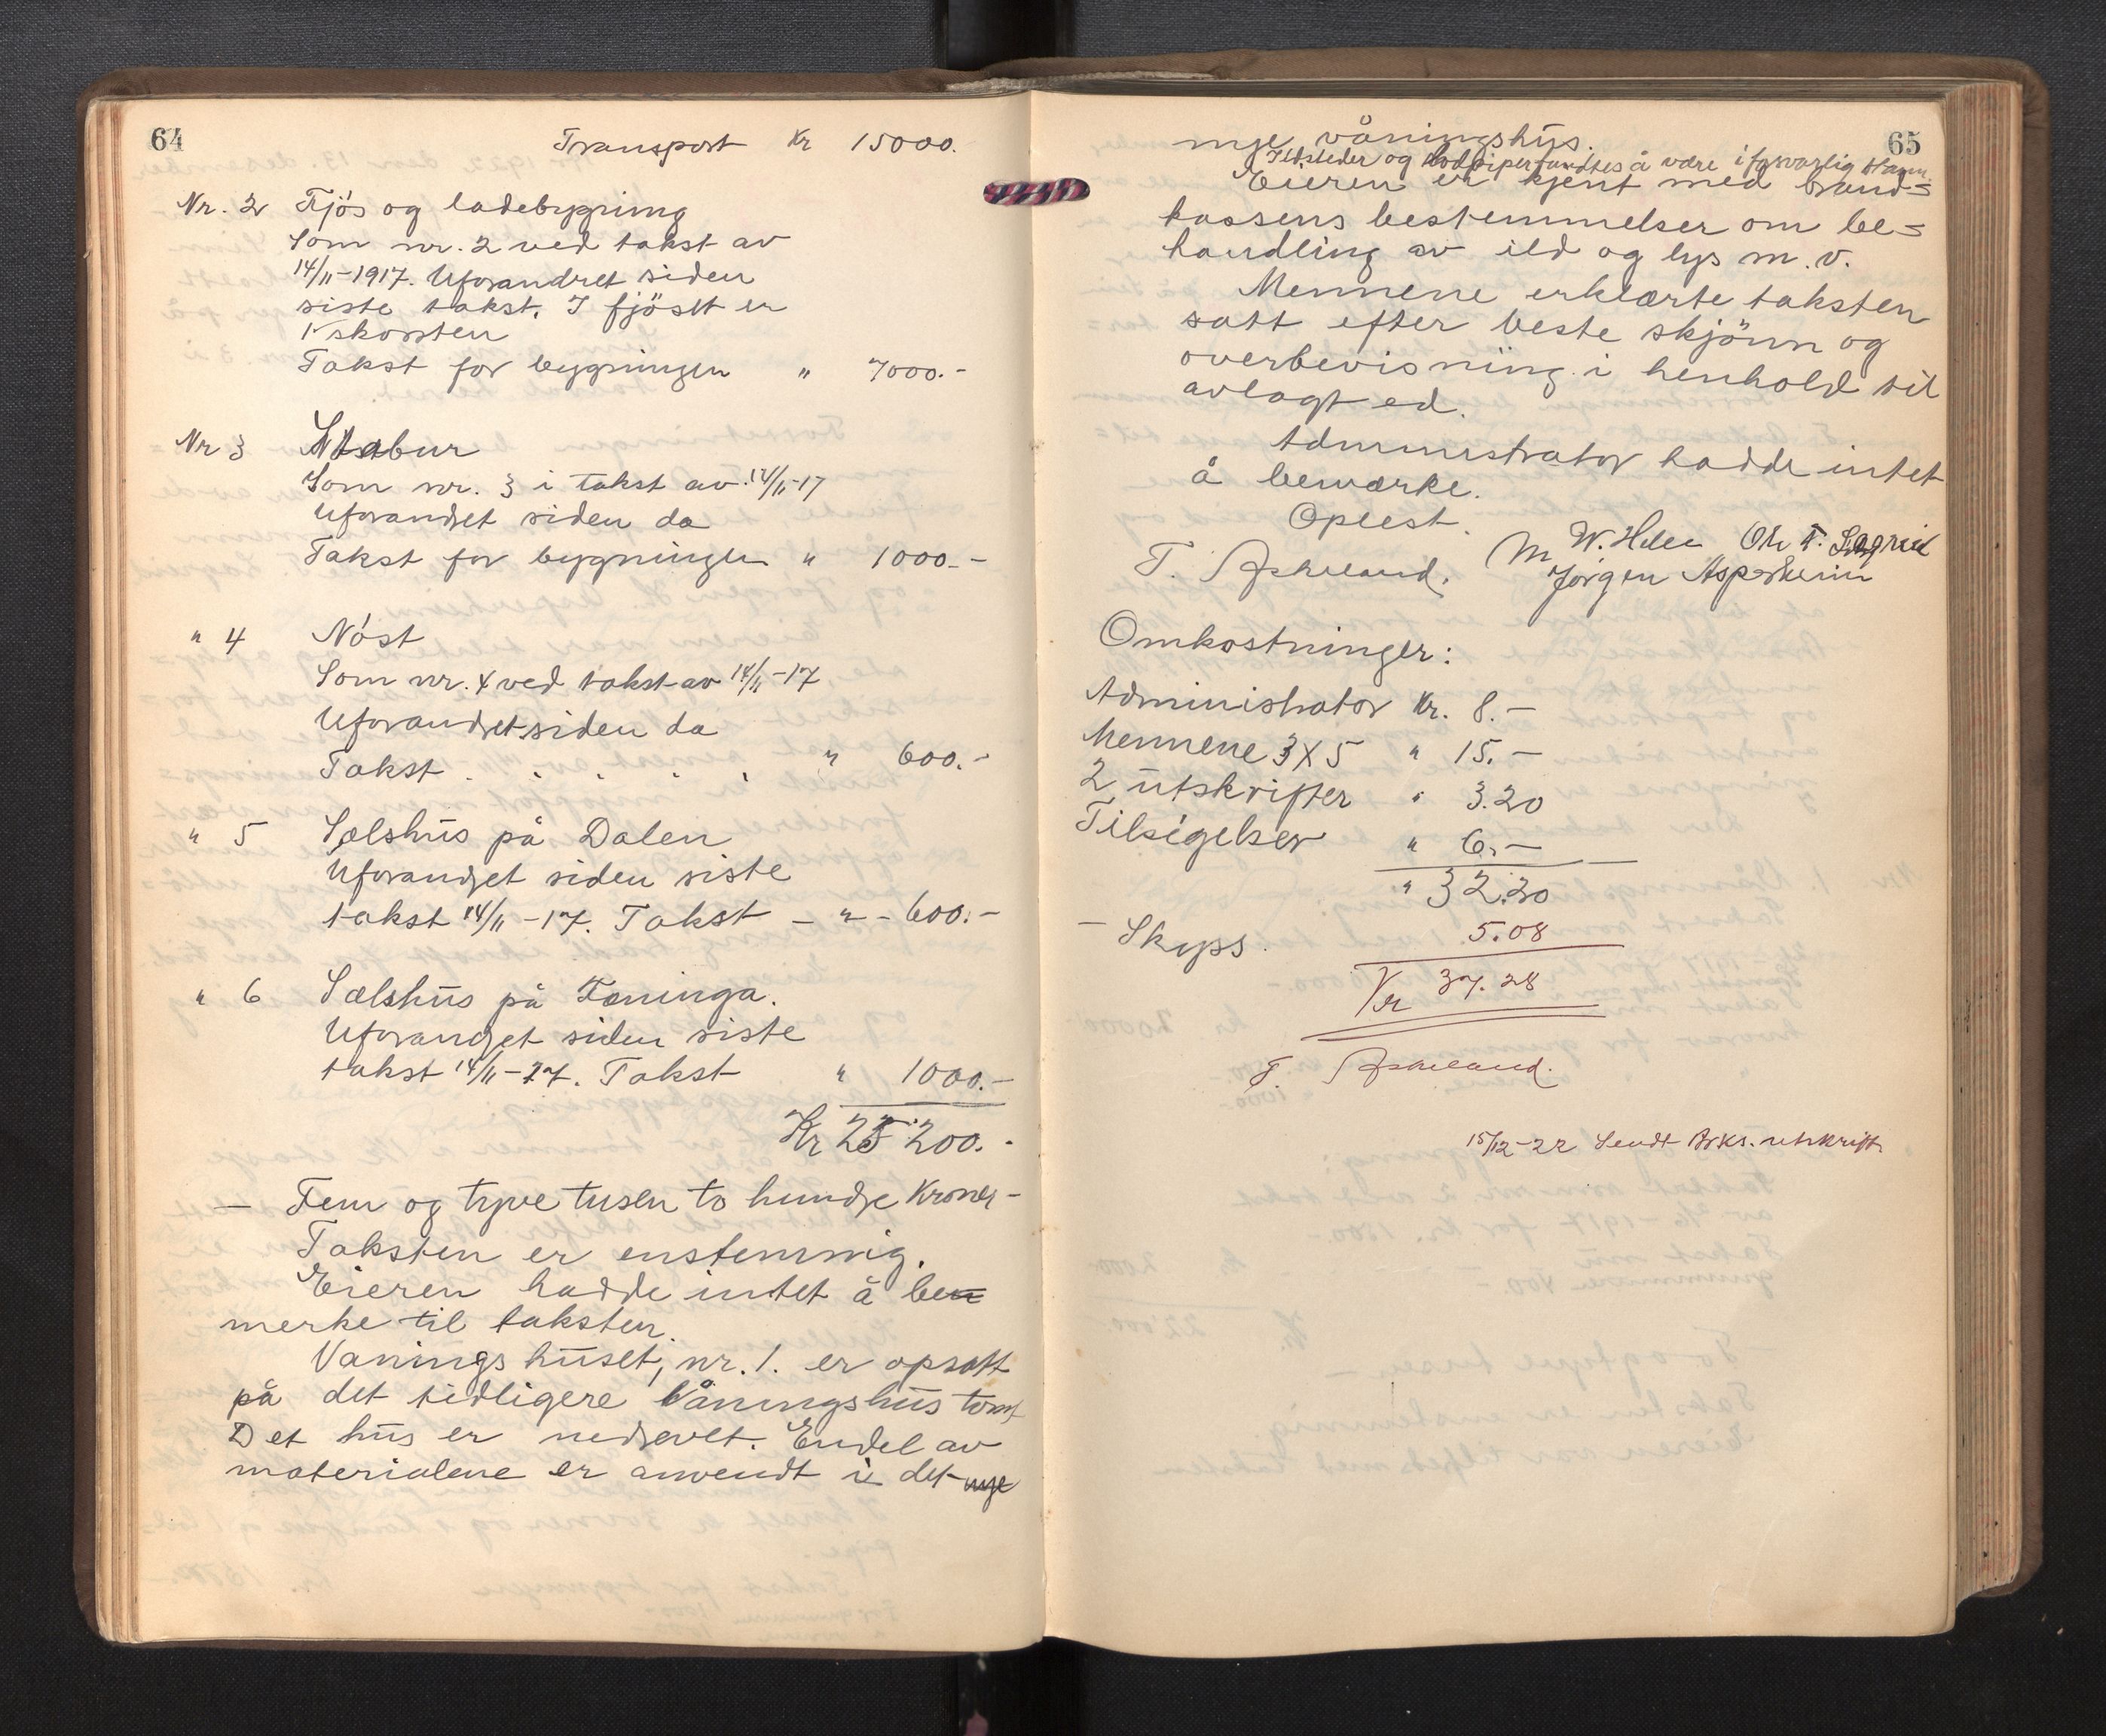 64
Transport Kr 15000.
Nr. 2 Fjös og ladebygning
Som nr. 2 ved takst av
14/11-1917. Uforandret siden
siste takst. I fjöset er
1 skorsten
Takst for bygningen " 7000.-
Nr 3 Stabur
Som nr. 3 i takst av 14/11-17
Uforandret siden da
Takst for bygningen " 1000.-
" 4 Nöst
Som nr. 4 ved takst av 14/11-17
Uforandret siden da
Takst . . . . . " 600.-
" 5 Sælshus på Dalen
Uforandret siden siste
takst 14/11-17. Takst - " - 600.-
" 6 Sælshus på Fæninga.
Uforandret siden siste
takst 14/11-17. Takst " 1000.-
Kr 25200.-
- Fem og tyve tusen to hundre Kroner-
Taksten er enstemmig.
Eieren hadde intet å be
merke til taksten.
Vaningshuset, nr. 1. er opsatt
på det tidligere våningshus tomt
Det hus er nedrevet. Endel av
materialene er anvendt i det nye
65
nye våningshus.
Ildsteder og rökpiper fandtes å være i forsvarlig stann.
Eieren er kjent med brand=
kassens bestemmelser om be=
handling av ild og lys m.v.
Mennene erklærte taksten
satt efter beste skjönn og
overbevisning i henhold til
avlagt ed.
Administrator hadde intet
å bemærke.
Oplest.
T. Askeland. M W. Helle Ole T. Lagreid
Jörgen Aspesheim
Omkostninger:
Administrator Kr. 8.-
Mennene 3X5 " 15.-
2 utskrifter " 3.20
Tilsigelser " 6.-
" 32.20
- Skyss. 5.08
Kr 37.28
T. Askeland.
15/12-22 Sendt Brks. utskrift